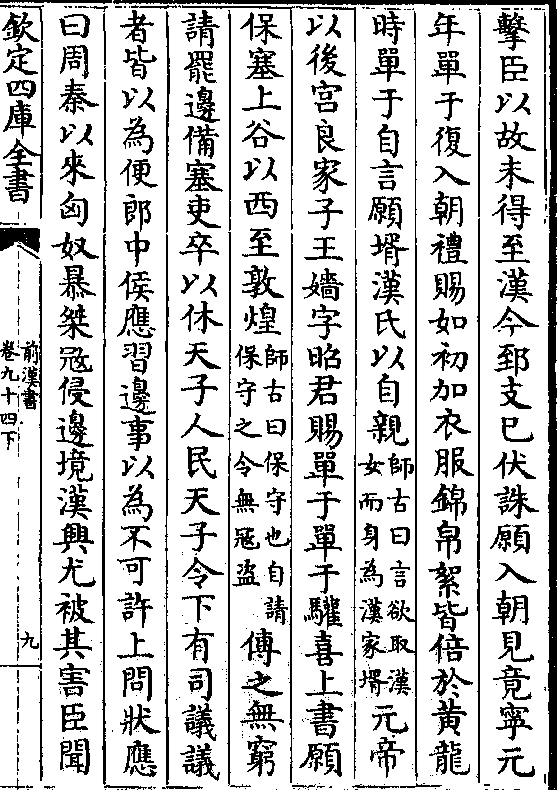 擊臣以故未得至漢今郅支已伏誅願入朝見竟寧元
年單于復入朝禮賜如初加衣服錦帛絮皆倍於黃龍
時單于自言願壻漢氏以自親師古曰言欲取漢女而身為漢家壻元帝
以後宮良家子王嬙字昭君賜單于單于驩喜上書願
保塞上谷以西至敦煌師古曰保守也自請保守之令無寇盜傳之無窮
請罷邊備塞吏卒以休天子人民天子令下有司議議
者皆以為便郎中侯應習邊事以為不可許上問狀應
曰周秦以來匈奴暴桀寇侵邊境漢興尤被其害臣聞
欽定四庫全書
前漢書
卷九十四下
九